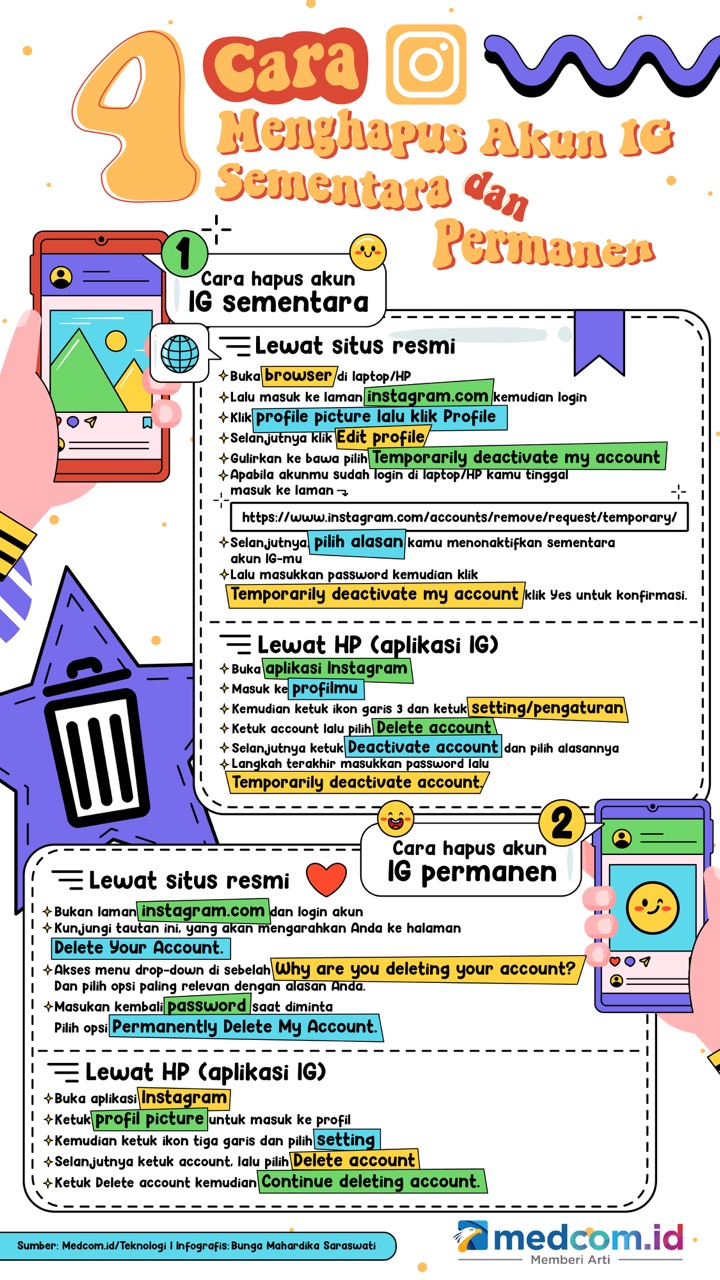 4 Cara
Menghapus Akun IG
Sementara dan
Permanen
1
Cara hapus akun
IG sementara
Lewat situs resmi
Buka browser di laptop/HP
Lalu masuk ke laman instagram.com kemudian login
Klik profile picture lalu klik Profile
Selanjutnya klik Edit profile
Gulirkan ke bawa pilih Temporarily deactivate my account
Apabila akunmu sudah login di laptop/HP kamu tinggal
masuk ke laman
https://www.instagram.com/accounts/remove/request/temporary/
Selanjutnya, pilih alasan kamu menonaktifkan sementara
akun IG-mu
Lalu masukkan password kemudian klik
Temporarily deactivate my account klik Yes untuk konfirmasi.
Lewat HP (aplikasi IG)
Buka aplikasi Instagram
Masuk ke profilmu
Kemudian ketuk ikon garis 3 dan ketuk setting/pengaturan
Ketuk account lalu pilih Delete account
Selanjutnya ketuk Deactivate account dan pilih alasannya
Langkah terakhir masukkan password lalu
Temporarily deactivate account.
2
Cara hapus akun
IG permanen
Lewat situs resmi
Bukan laman instagram.com dan login akun
Kunjungi tautan ini, yang akan mengarahkan Anda ke halaman
Delete Your Account.
Akses menu drop-down di sebelah Why are you deleting your account?
Dan pilih opsi paling relevan dengan alasan Anda.
Masukan kembali password saat diminta
Pilih opsi Permanently Delete My Account.
Lewat HP (aplikasi IG)
Buka aplikasi Instagram
Ketuk profil picture untuk masuk ke profil
Kemudian ketuk ikon tiga garis dan pilih setting
Selanjutnya ketuk account, lalu pilih Delete account
Ketuk Delete account kemudian Continue deleting account.
Sumber: Medcom.id/Teknologi | Infografis: Bunga Mahardika Saraswati
medcom.id
Memberi Arti